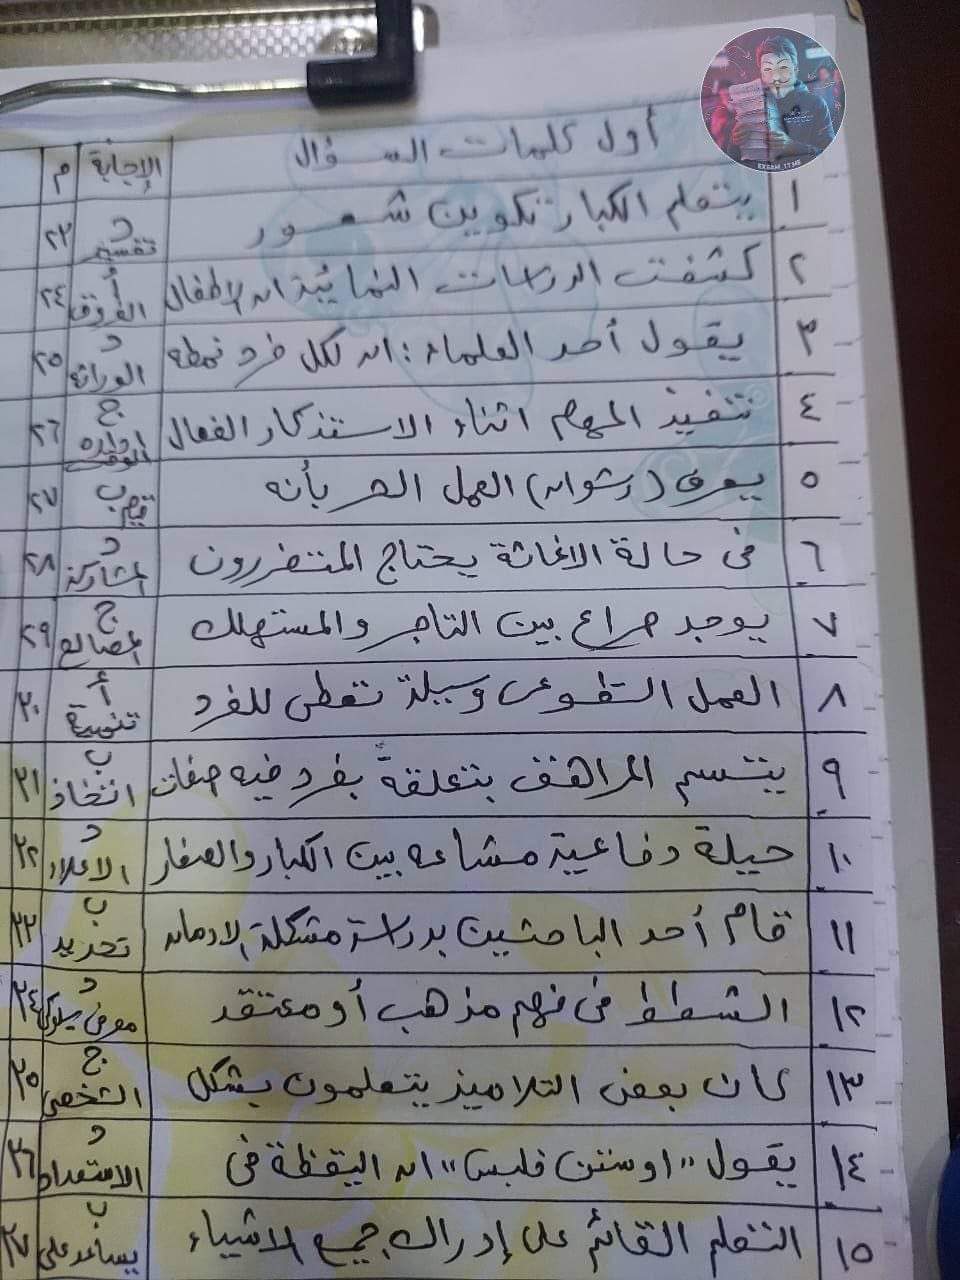 EXEAM ITMS
م الإجابة أول كلمات السؤال
١ يتعلم الكبار تكوين شعور د تفسير ٢٣
٢ كشفت الدراسات النمائية ان الاطفال أ الفروق ٢٤
٣ يقول أحد العلماء: ان لكل فرد نمطه د الوراثة ٢٥
٤ تنفيذ المهام اثناء الاستذكار الفعال ج إدارة الوقت ٢٦
٥ يعرف (رشوان) العمل الحر بأنه ب قيم ٢٧
٦ فى حالة الاغاثة يحتاج المتضررون د المشاركة ٢٨
٧ يوجد صراع بين التاجر والمستهلك ج المصالح ٢٩
٨ العمل التطوعى وسيلة تعطى للفرد أ تنمية ٣٠
٩ يتسم المراهق بتعلقة بفرد فيه صفات ب اتخاذ ٣١
١٠ حيلة دفاعية مشاعه بين الكبار والصغار د الاعلاء ٣٢
١١ قام أحد الباحثين بدراسة مشكلة الادمان ب تحديد ٣٣
١٢ الشطط فى فهم مذهب أو معتقد د معرفى سلوكى ٣٤
١٣ كان بعض التلاميذ يتعلمون بشكل ج الشخصى ٣٥
١٤ يقول "اوستن فلبس" ان اليقظة فى د الاستعداد ٣٦
١٥ التعلم القائم على إدراك جميع الاشياء ب يساعد على ٣٧